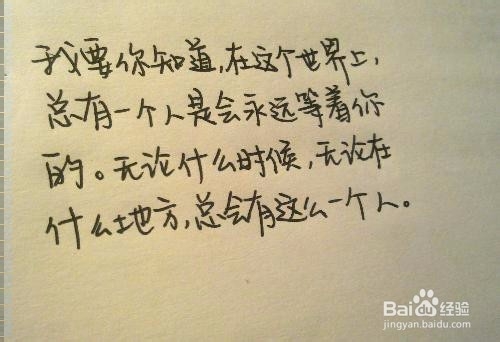 我要你知道,在这个世界上,
总有一个人是会永远等着你
的。无论什么时候,无论在
什么地方,总会有这么一个人。
Baidu经验
jingyan.baidu.com